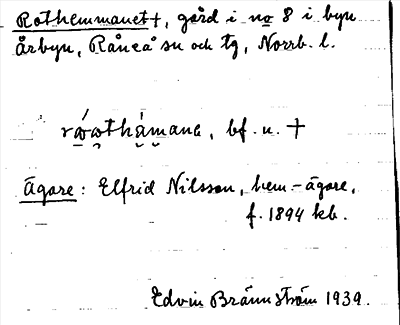 Rothemmanet +, gård i no 8 i byn
Årbyn, Råneå sn och tg, Norrb. l.
bf. n. +
Ägare: Elfrid Nilsson, hem.-ägare,
f. 1894 kb.
Edvin Brännström 1939.